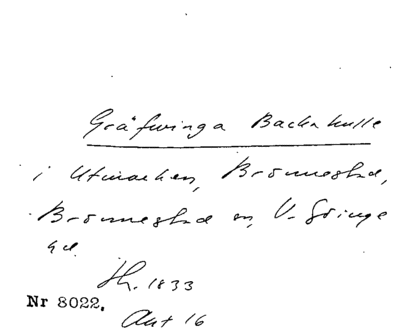 Gräfwinga Backakulle
i Utmarken, Brönnestad,
Brönnestad sn, V. Göinge
hd.
Sk. 1833
Nr 8022.
Akt 16